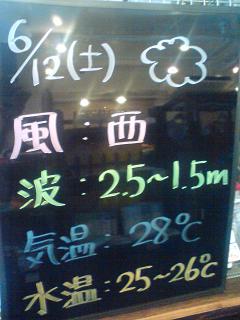 6/12(土)
風:西
波:2.5~1.5m
気温:28℃
水温:25~26℃